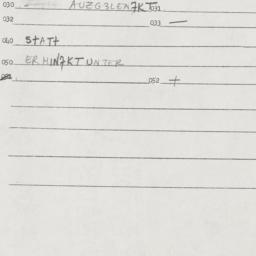 030 AUZG3LEN7KT 031
032 033 —
040 STATT
050 ERMIN7KT UNTER
052 +